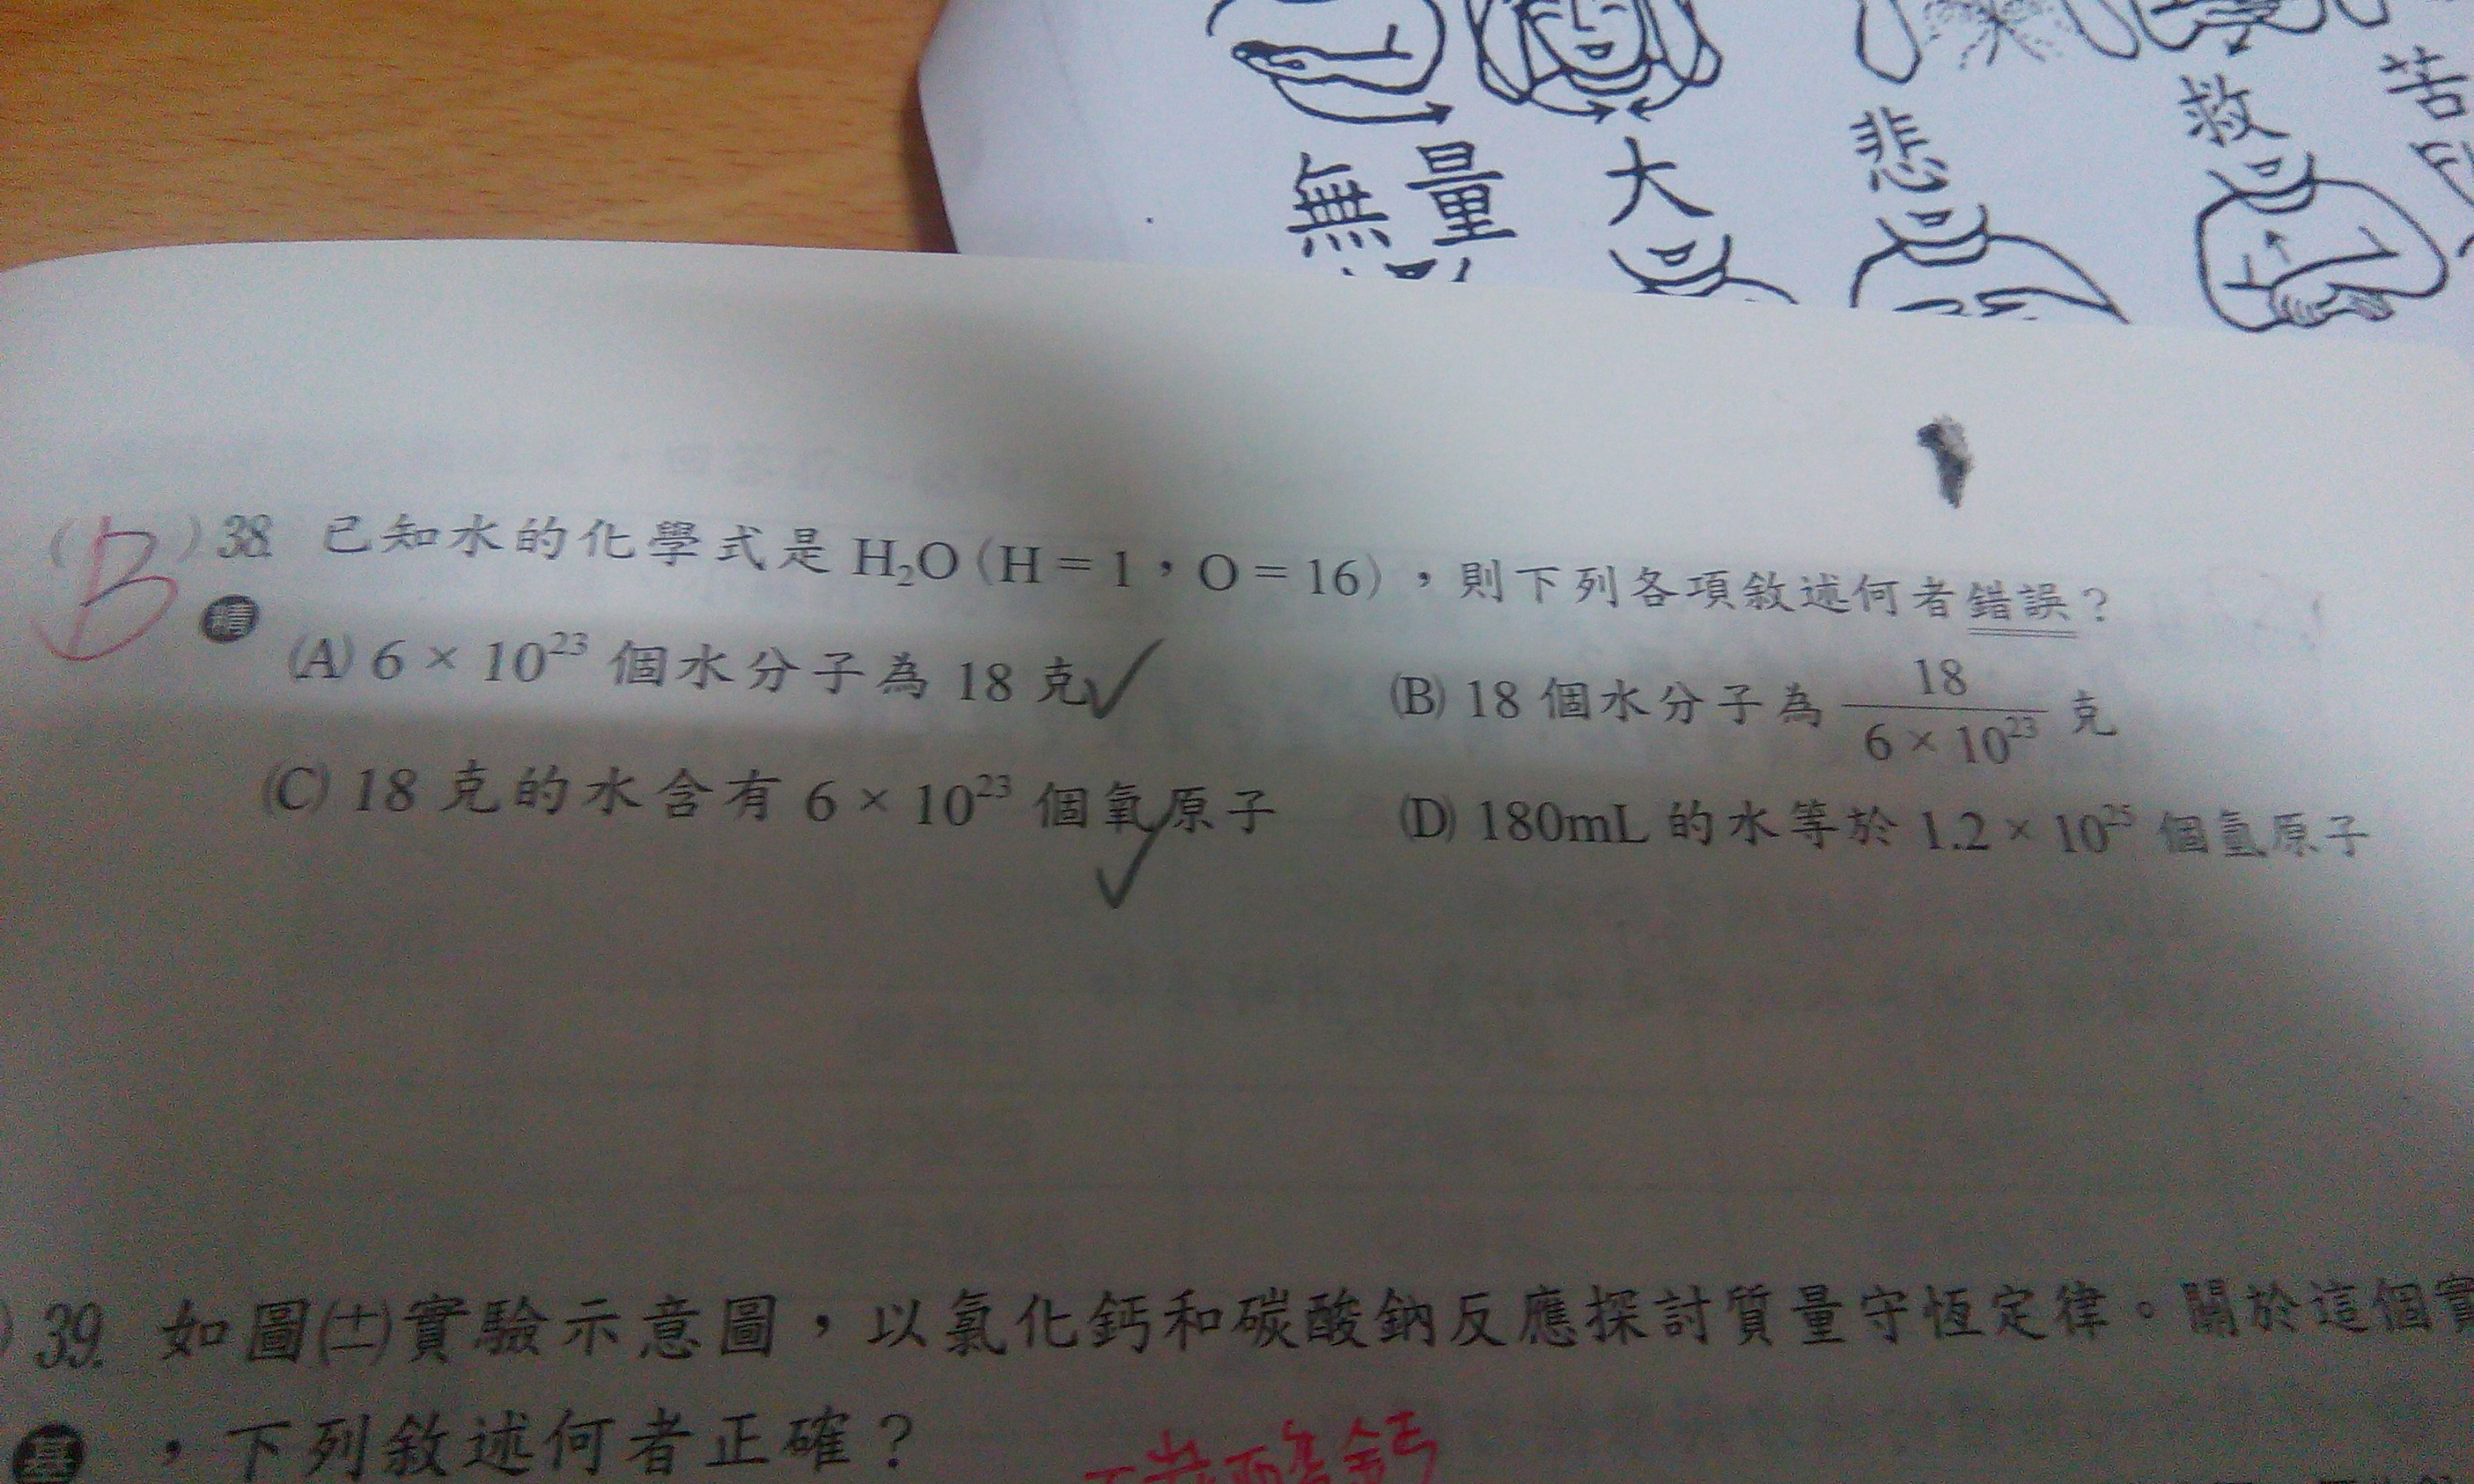 無量 大 悲 救 苦
( B ) 38. 已知水的化學式是 H₂O(H = 1,O = 16),則下列各項敘述何者錯誤?
精
(A) 6 × 10²³ 個水分子為 18 克✓ (B) 18 個水分子為 18/(6 × 10²³) 克
(C) 18 克的水含有 6 × 10²³ 個氧原子✓ (D) 180mL 的水等於 1.2 × 10²⁵ 個氫原子
) 39. 如圖(士)實驗示意圖,以氯化鈣和碳酸鈉反應探討質量守恆定律。關於這個實
基 ,下列敘述何者正確?
碳酸鈣